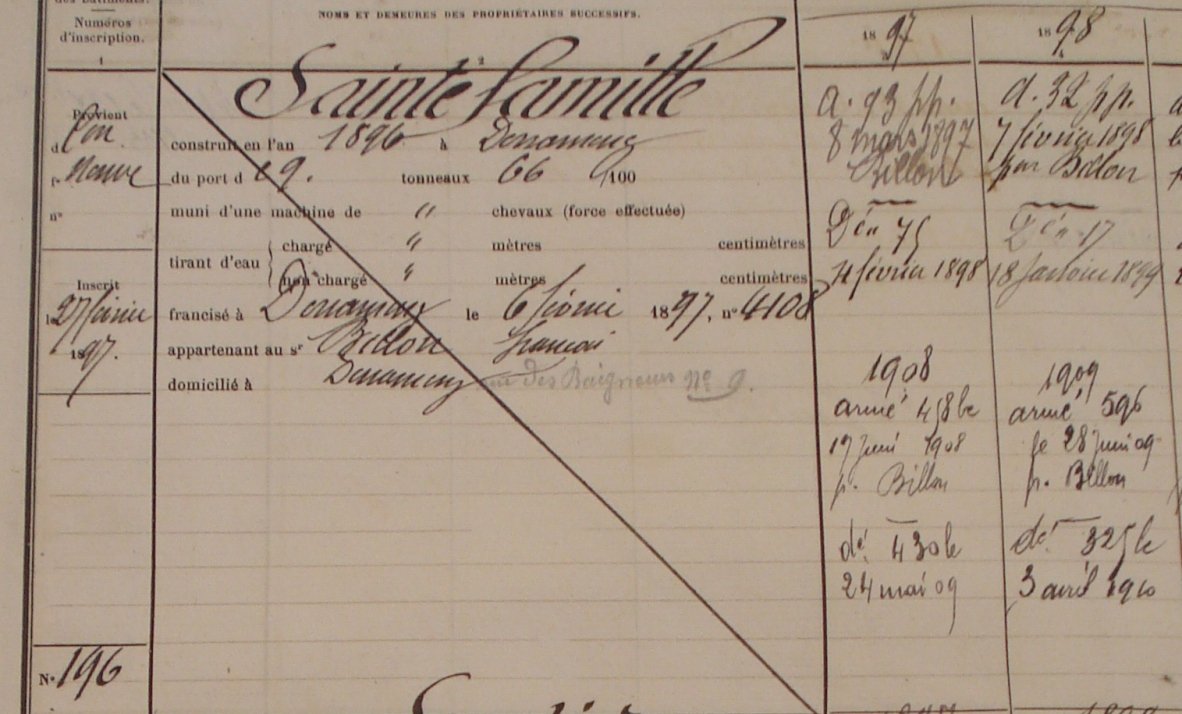 des bâtiments.
Numéros
d'inscription.
1
NOMS ET DEMEURES DES PROPRIÉTAIRES SUCCESSIFS.
2
Sainte famille
Provient
d
fe Neuve
no
construit en l'an 1896 à Douarnenez
du port d 9. tonneaux 66 /100
muni d'une machine de " chevaux (force effectuée)
tirant d'eau
chargé " mètres centimètres
non chargé " mètres centimètres
Inscrit
le 27 février
1897.
francisé à Douarnenez le 6 février 1897, no 4108
appartenant au sr Billon françois
domicilié à Douarnenez rue des Baigneurs No
No 196
1897
a. 93 pp.
8 mars 1897
Billon
Dén 75
4 février 1898
1908
armé 458 bc
17 juin 1908
p. Billon
dé 430 bc
24 mai 09
1898
a. 32 pp.
7 février 1898
par Billon
Dén 17
18 janvier 1899
1909
armé 596
le 28 juin 09
p. Billon
dé 325 bc
3 avril 1910